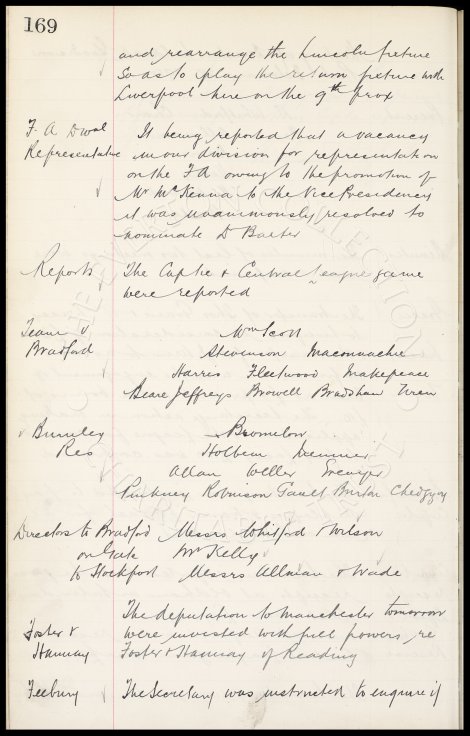 169
and rearrange the Lincoln fixture
So as to play the return fixture with
Liverpool here on the 9th prox
F. A Divnl
Representative
It being reported that a vacancy
in our division for representation
on the FA owing to the promotion of
Mr McKenna to the Vice Presidency
it was unanimously resolved to
nominate D Baxter
Reports
The Cuptie & Central League game
were reported
Team v
Bradford
Wm Scott
Stevenson Maconnachie
Harris Fleetwood Makepeace
Beare Jefferys Browell Bradshaw Wren
v Burnley
Res
Bromilow
Holbem Meunier
Allan Weller Grenyer
Pinkney Robinson Gault Burton Chedgzoy
Directors to Bradford
Messrs Whitford & Wilson
on Gate
Mr Kelly
to Stockport
Messrs Allman & Wade
Foster &
Hannay
The deputation to Manchester tomorrow
were invested with full powers re
Foster & Hannay of Reading
The Secretary was instructed to enquire if